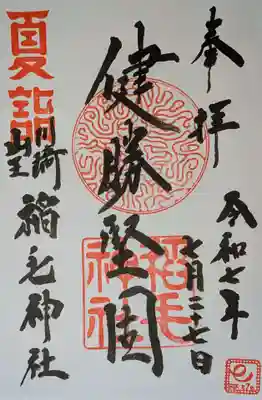 奉拝
令和七年
七月二十七日
健勝堅固
稲毛神社
夏詣
川崎山王
稲毛神社